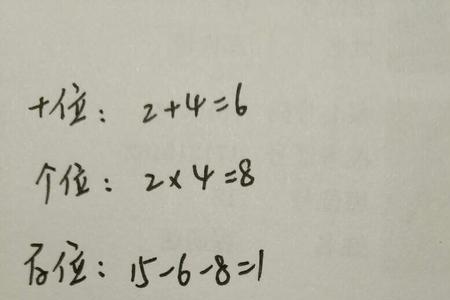 十位：2+4=6
个位：2×4=8
百位：15-6-8=1